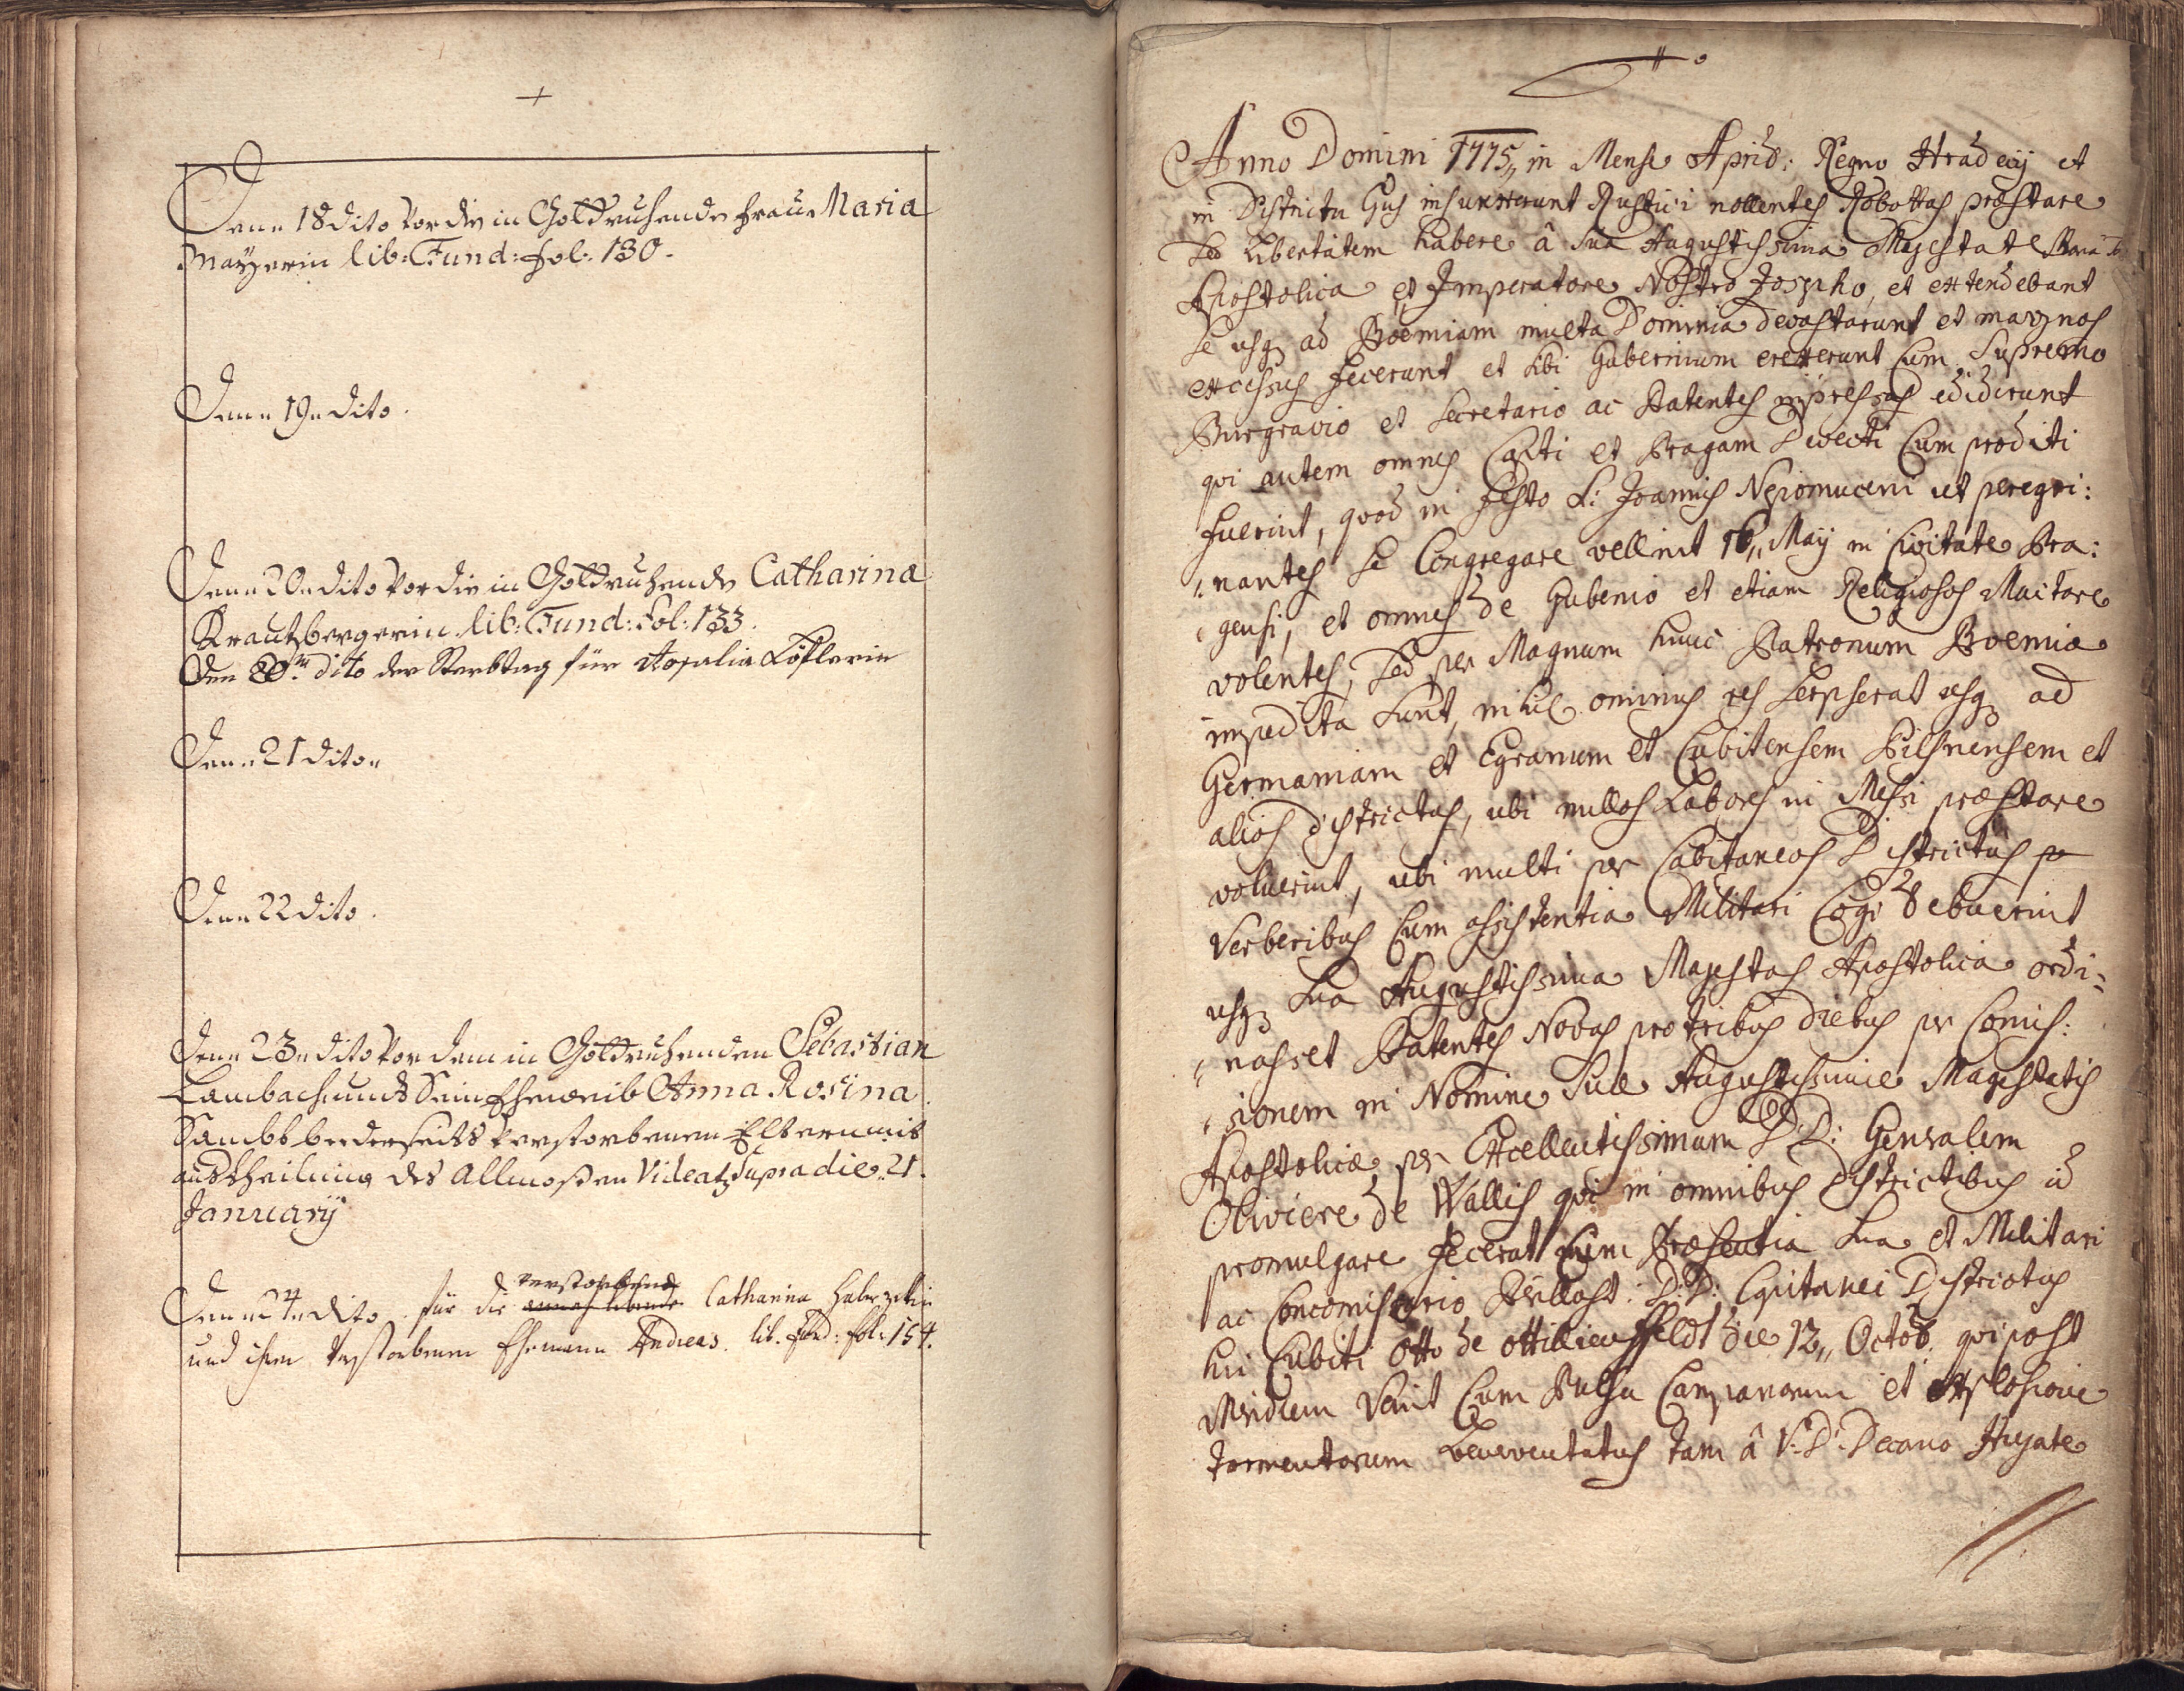 Denn 18 dito vor die in Gott ruhende fraue Maria
Mayerin lib: Fund: fol: 130.
Denn 19n dito.
Denn 20n dito vor die in Gott ruhende Catharina
Krautzbergerin lib: Fund: Fol: 133.
Den 20tn dito der Sterbtag für Rosalia Löflerin
Denn 21 diton
Denn 22 dito.
Denn 23n dito vor dem in Gott ruhenden Sebastian
Lambach undt Sein Eheweib Anna Rosina
Sambt beederseits verstorbenen Eltern mit
austheilung des Allmoßen Videatz Supra die 21.
January
Denn 24n dito für die verstorbene Catharina Haberzetlin
und ihren verstorbenen Ehemann Andreas. lib. fund: fol: 154.
Anno Domini 1775,, in Mense Apriℓ: Regno Hradecij et
in Districtu Gus insurrexerunt Rustici nollentes Robottas præstare
sed Libertatem habere â Sua Augustissima Majestate
Apostolica et Imperatore Nostro Josepho, et extendebant
se usq ad Boëmiam multa Dominia devastarunt et magnos
excessus fecerunt et sibi Gubernium erexerunt cum Supremo
Burgravio et Secretario ac Patentes impressas ediderunt
qvi autem omnes Capti et Pragam Devecti Cum proditi
fuerint, qvod in festo S: Joannis Nepomuceni ut peregri:
nantes se Congregare vellent 16,, Maij in Civitate Pra:
gensi, et omnes de Gubernio et etiam Religiosos Mactare
volentes, Sed per Magnum hunc Patronum Boemiæ
impedita sunt, nihil ominus res Serpserat usq ad
Germaniam et Egranum et Cubitensem Pilsnensem et
alios districtus, ubi nullos Labores in Messi præstare
voluerint, ubi multi per Capitaneos Districtus
Verberibus Cum assistentia Militari Cogi debuerint
usq Sua Augustissima Majestas Apostolica ordi:
nasset Patentes Novas pro tribus diebus per Comis:
sionem in Nomine Suæ Augustissimæ Majestatis
Apostolicæ, per Excellentissimum D:D: Generalem
Oliviere de Wallis qvi in omnibus districtibus id
promulgare fecerat cum Præsentia Sua et Militari
ac Concomissario D:D: Capitanei Districtus
hui Cubiti Otto de Ottilienffeldt die 13,, Octob. qvi post
Meridiem Venit Cum Pulsu Campanarum et explosione
tormentorum beneventatus tam â V: D: Decano Hujate